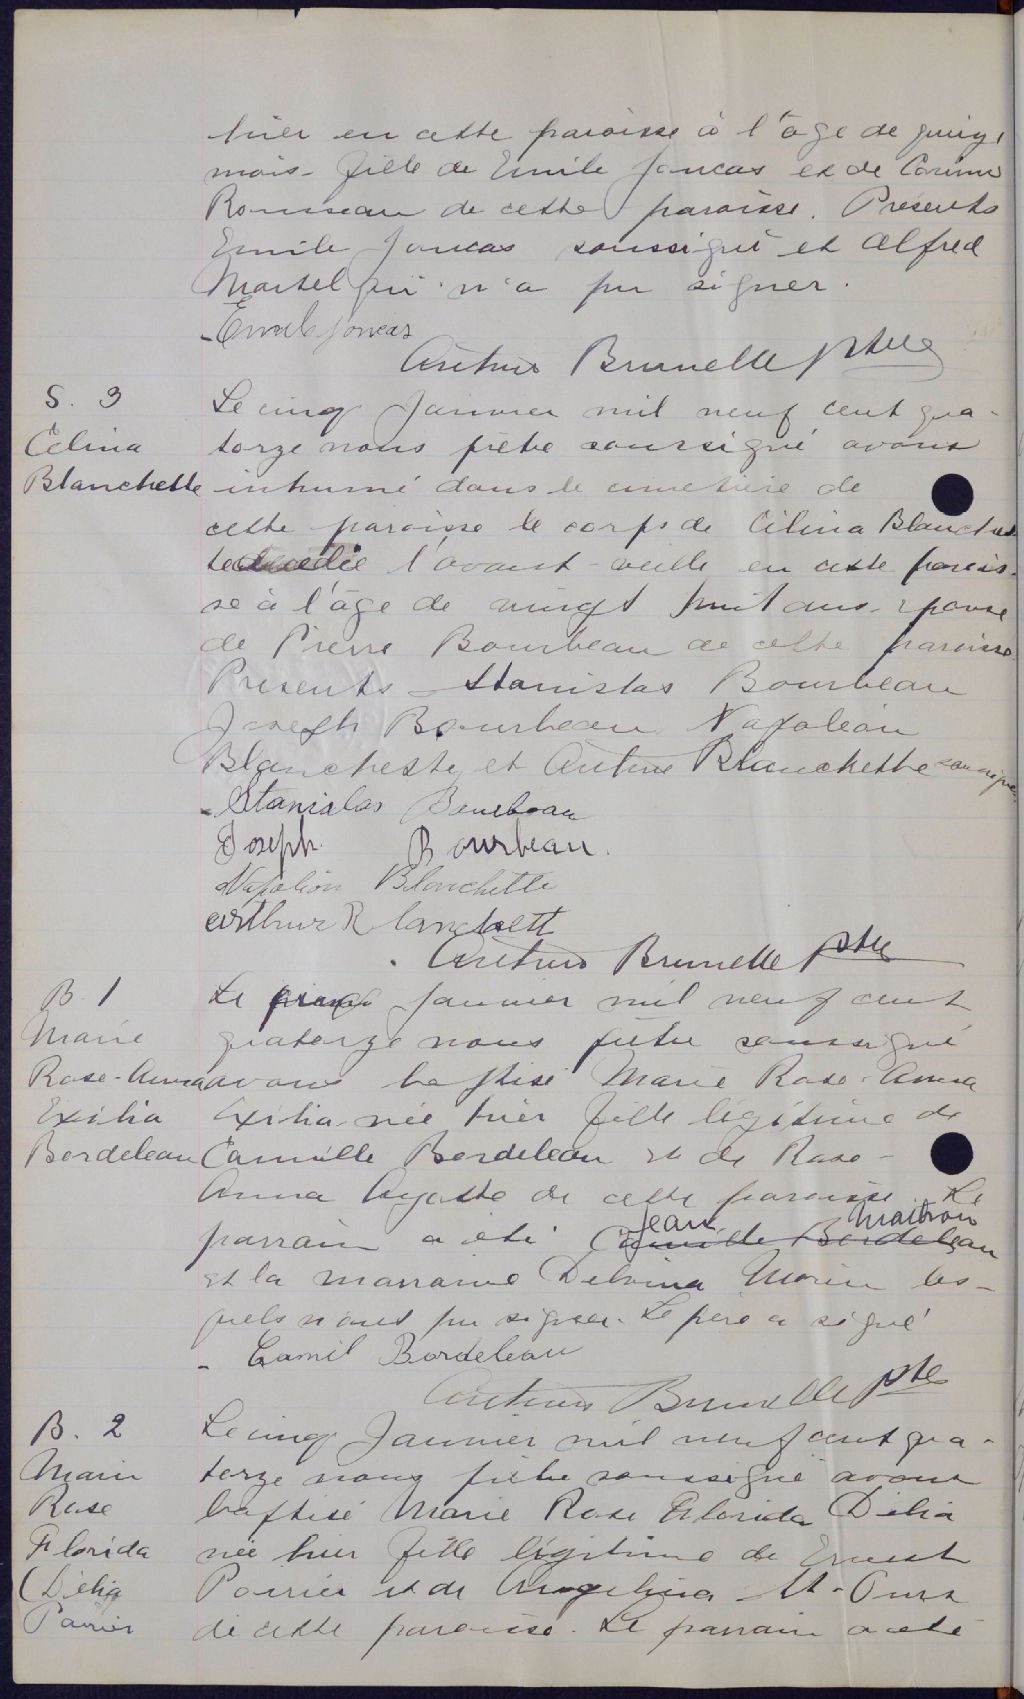 hier en cette paroisse à l'âge de quinze
mois - fille de Emile Joncas et de Corinne
Rousseau de cette paroisse. Présents
Emile Joncas soussigné et Alfred
Martel qui n'a pu signer.
Emile Joncas
Arthur Brunelle ptre
S. 3
Célina
Blanchette
Le cinq Janvier mil neuf cent qua-
torze nous prêtre soussigné avons
inhumé dans le cimetière de
cette paroisse le corps de Célina Blanchet-
te décédée l'avant-veille en cette parois-
se à l'âge de vingt huit ans - épouse
de Pierre Bourbeau de cette paroisse.
Présents Stanislas Bourbeau
Joseph Bourbeau Napoléon
Blanchette et Arthur Blanchette
Stanislas Bourbeau
Joseph Bourbeau.
Napoléon Blanchette
Arthur Blanchett
Arthur Brunelle ptre
B. 1
Marie
Rose-Anna
Exilia
Bordeleau
Le Janvier mil neuf cent
quatorze nous prêtre soussigné
avons baptisé Marie Rose-Anna
Exilia née hier fille légitime de
Camille Bordeleau et de Rose-
Anna Ayotte de cette paroisse. Le
Jean
parrain a été Camille Bordeleau
et la marraine Delvina Morin les-
quels n'ont pu signer. Le père a signé
Camil Bordeleau
Arthur Brunelle ptre
B. 2
Marie
Rose
Florida
Délia
Poirier
Le cinq Janvier mil neuf cent qua-
torze nous prêtre soussigné avons
baptisé Marie Rose Florida Délia
née hier fille légitime de Ernest
Poirier et de Angelina St-Ours
de cette paroisse. Le parrain a été